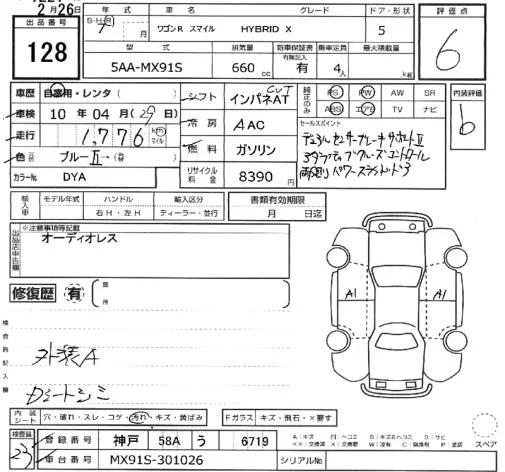 2月26日
出品番号
128
年式
S・H・R 7
車名
ワゴンR スマイル
グレード
HYBRID X
ドア・形状
5
評価点
6
型式
5AA-MX91S
排気量
660 cc
新車保証書
有無記入
有
乗車定員
4人
最大積載量
kg
車歴
自家用・レンタ
車検
10年04月(29)日
走行
1,776 km マイル
色
ブルーII→
カラーNo.
DYA
シフト
インパネAT CVT
冷房
AAC
燃料
ガソリン
リサイクル料金
8390
純正のみ
PS PW AW SR
ABS エアB TV ナビ
内装評価
b
セールスポイント
デュアルセンサーブレーキサポートII
アダプティブクルーズコントロール
両側パワースライドドア
輸入車
モデル年式
ハンドル
右H・左H
輸入区分
ディーラー・並行
書類有効期限
月 日迄
出品店申告欄
※注意事項等記載
オーディオレス
修復歴
有
箇所
検査員記入欄
外装A
Dシートシミ
A1
A1
内装シート
穴・破れ・スレ・コゲ・汚れ・キズ・黄ばみ
Fガラス
キズ・飛石・×要す
検査員
23
登録番号
神戸 58A う 6719
車台番号
MX91S-301026
シリアルNo.
A:キズ M:ヘコミ B:キズ&ヘコミ S:サビ
XX:交換済 X:要交換 W:波有 C:腐食有 P:塗装
スペア